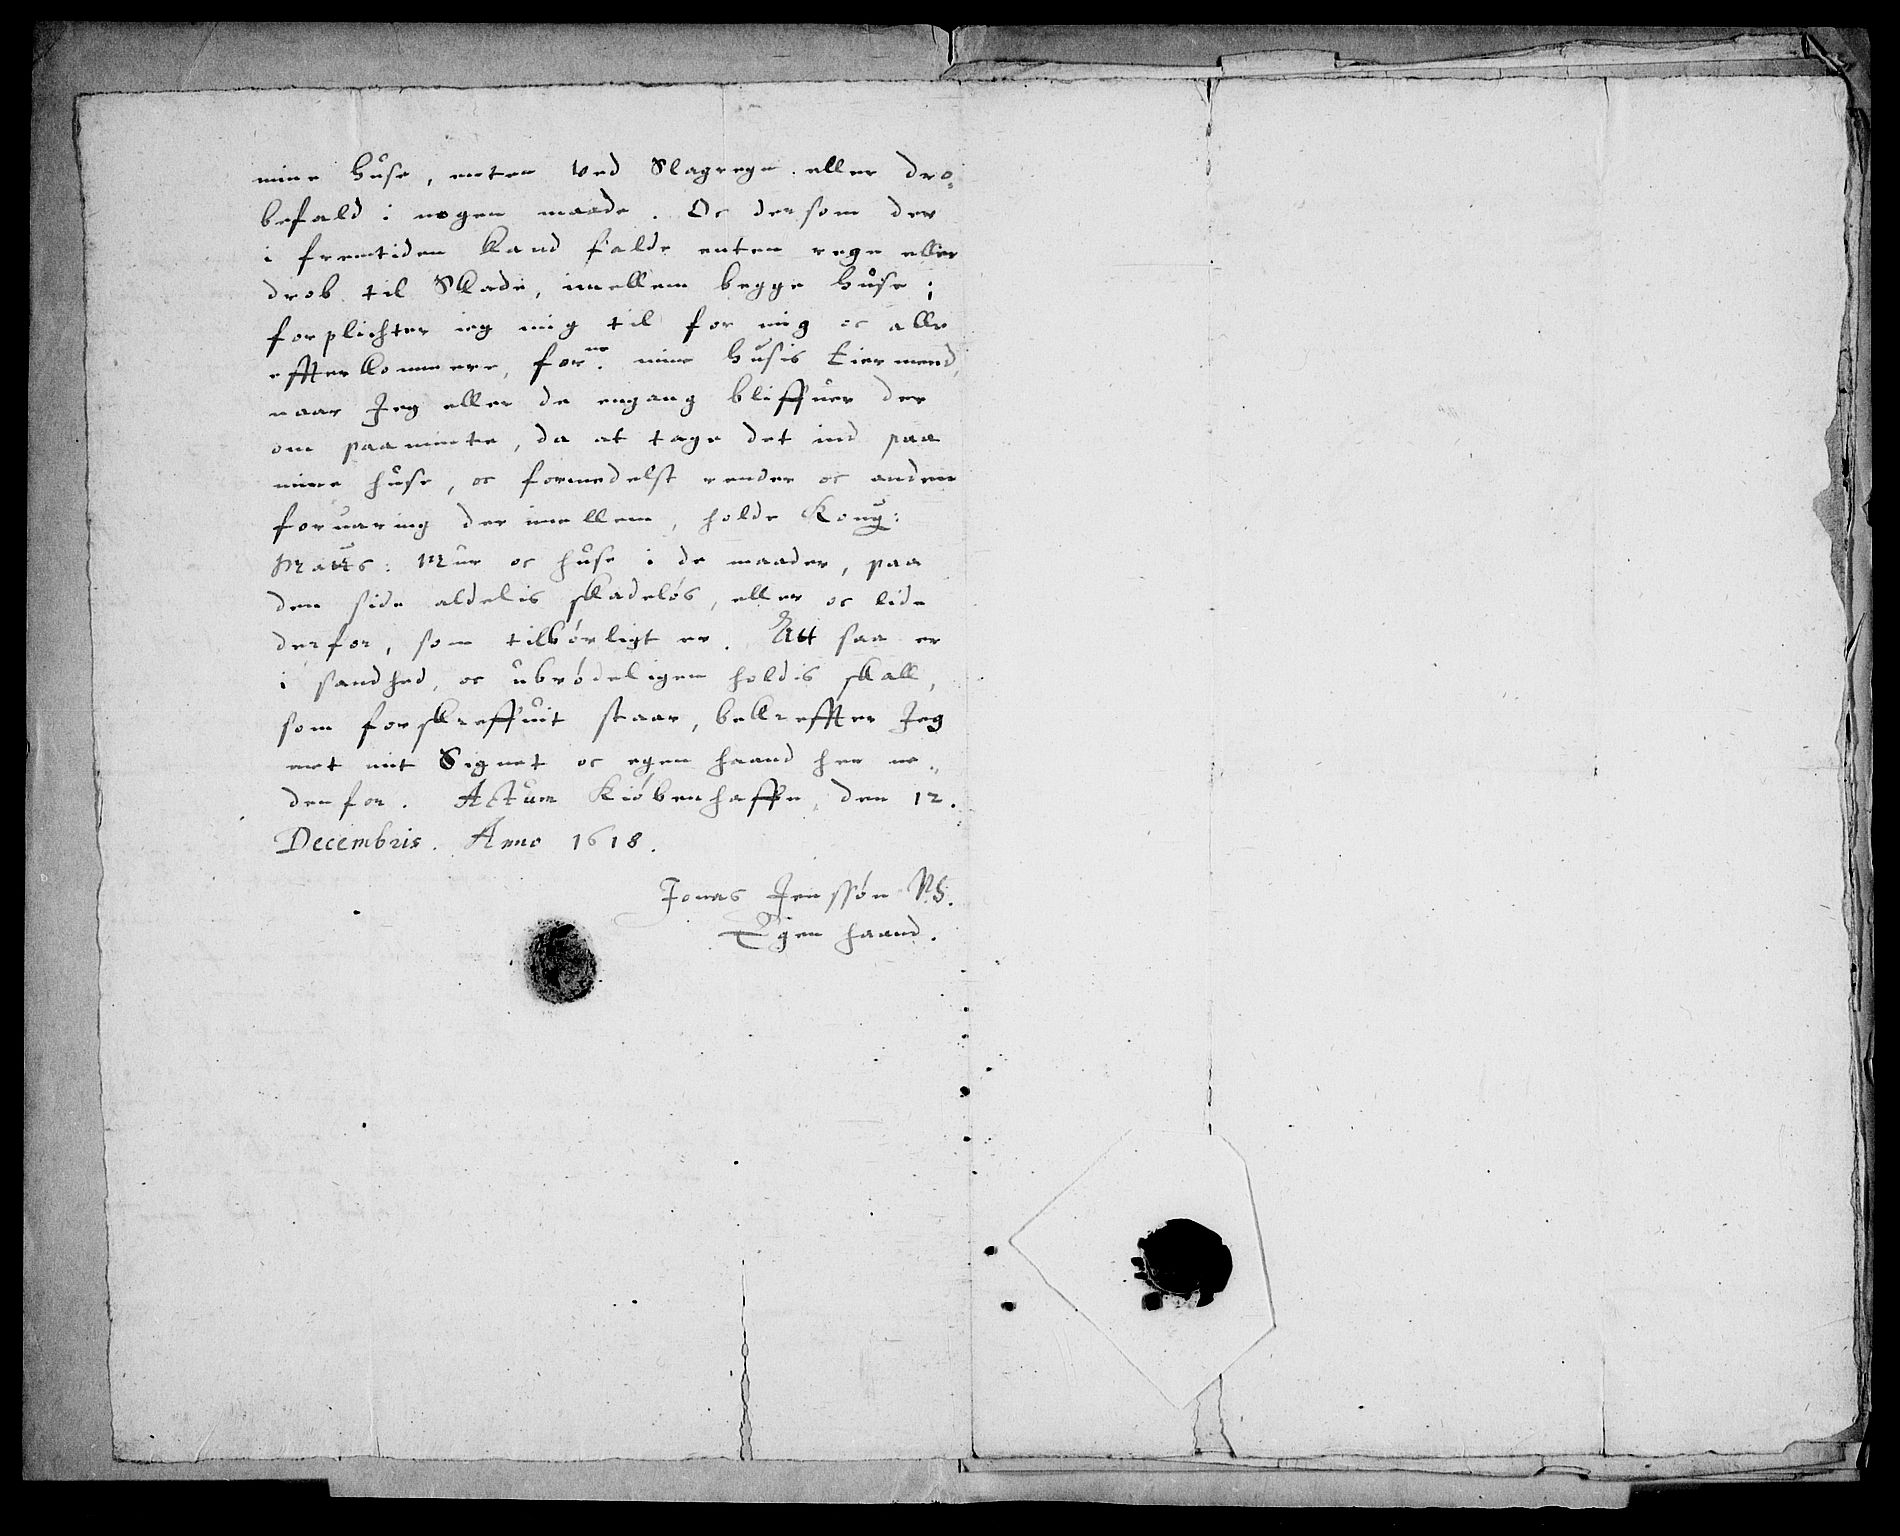 mine huse, enten ved Slagregn eller dro-
befald i nogen maade. Oc dersom der
i fremtiden kand falde enten regn eller
drob til Skade, imellem begge huse;
forplichter ieg mig til for mig oc alle
efftterkommere, forne. mine husis Eiermend,
naar Jeg eller de engang bliffuer der
om paaminte, da at tage det ind paa
mine huse, oc formedelst render oc anden
foruaring der imellem, holde Kong:
Matts: Mur oc huse i de maader, paa
den side aldelis skadeløs, eller oc lide
derfor, som tilbørligt er. Att saa er
i sandhed, oc ubrødeligen holdis skall,
som forskreffuit staar, bekreffter Jeg
met mit Signet oc egen haand her ne-
denfor. Actum Kiøbenhaffn, den 12.
Decembris. Anno 1618.
Jonas Jenssøn
Egen haand.